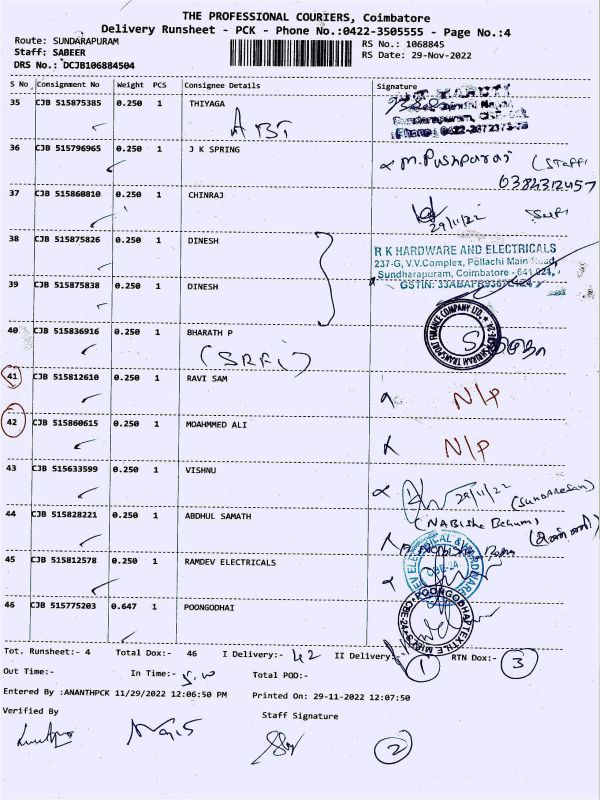 THE PROFESSIONAL COURIERS, Coimbatore
Delivery Runsheet - PCK - Phone No.:0422-3505555 - Page No.:4
Route: SUNDARAPURAM
Staff: SABEER
DRS No.: DCJB106884504
RS No.: 1068845
RS Date: 29-Nov-2022
S No Consignment No Weight PCS Consignee Details Signature
35 CJB 515875385 0.250 1 THIYAGA
ABT
36 CJB 515796965 0.250 1 J K SPRING
M. Pushparaj (Staff)
37 CJB 515860810 0.250 1 CHINRAJ
29/11/22
38 CJB 515875826 0.250 1 DINESH
R K HARDWARE AND ELECTRICALS
237-G, V.V.Complex, Pollachi Main Road,
Sundharapuram, Coimbatore - 641 024.
39 CJB 515875838 0.250 1 DINESH
40 CJB 515836916 0.250 1 BHARATH P
(SRFi)
41 CJB 515812610 0.250 1 RAVI SAM
N/P
42 CJB 515860615 0.250 1 MOAHMMED ALI
N/P
43 CJB 515633599 0.250 1 VISHNU
29/11/22 (SUNDARESAN)
44 CJB 515828221 0.250 1 ABDHUL SAMATH
(NABisha Behum)
45 CJB 515812578 0.250 1 RAMDEV ELECTRICALS
CBE-24
46 CJB 515775203 0.647 1 POONGODHAI
Tot. Runsheet:- 4 Total Dox:- 46 I Delivery:- 42 II Delivery:- 1 RTN Dox:- 3
Out Time:- In Time:- 5.00 Total POD:-
Entered By :ANANTHPCK 11/29/2022 12:06:50 PM Printed On: 29-11-2022 12:07:50
Verified By Staff Signature
2